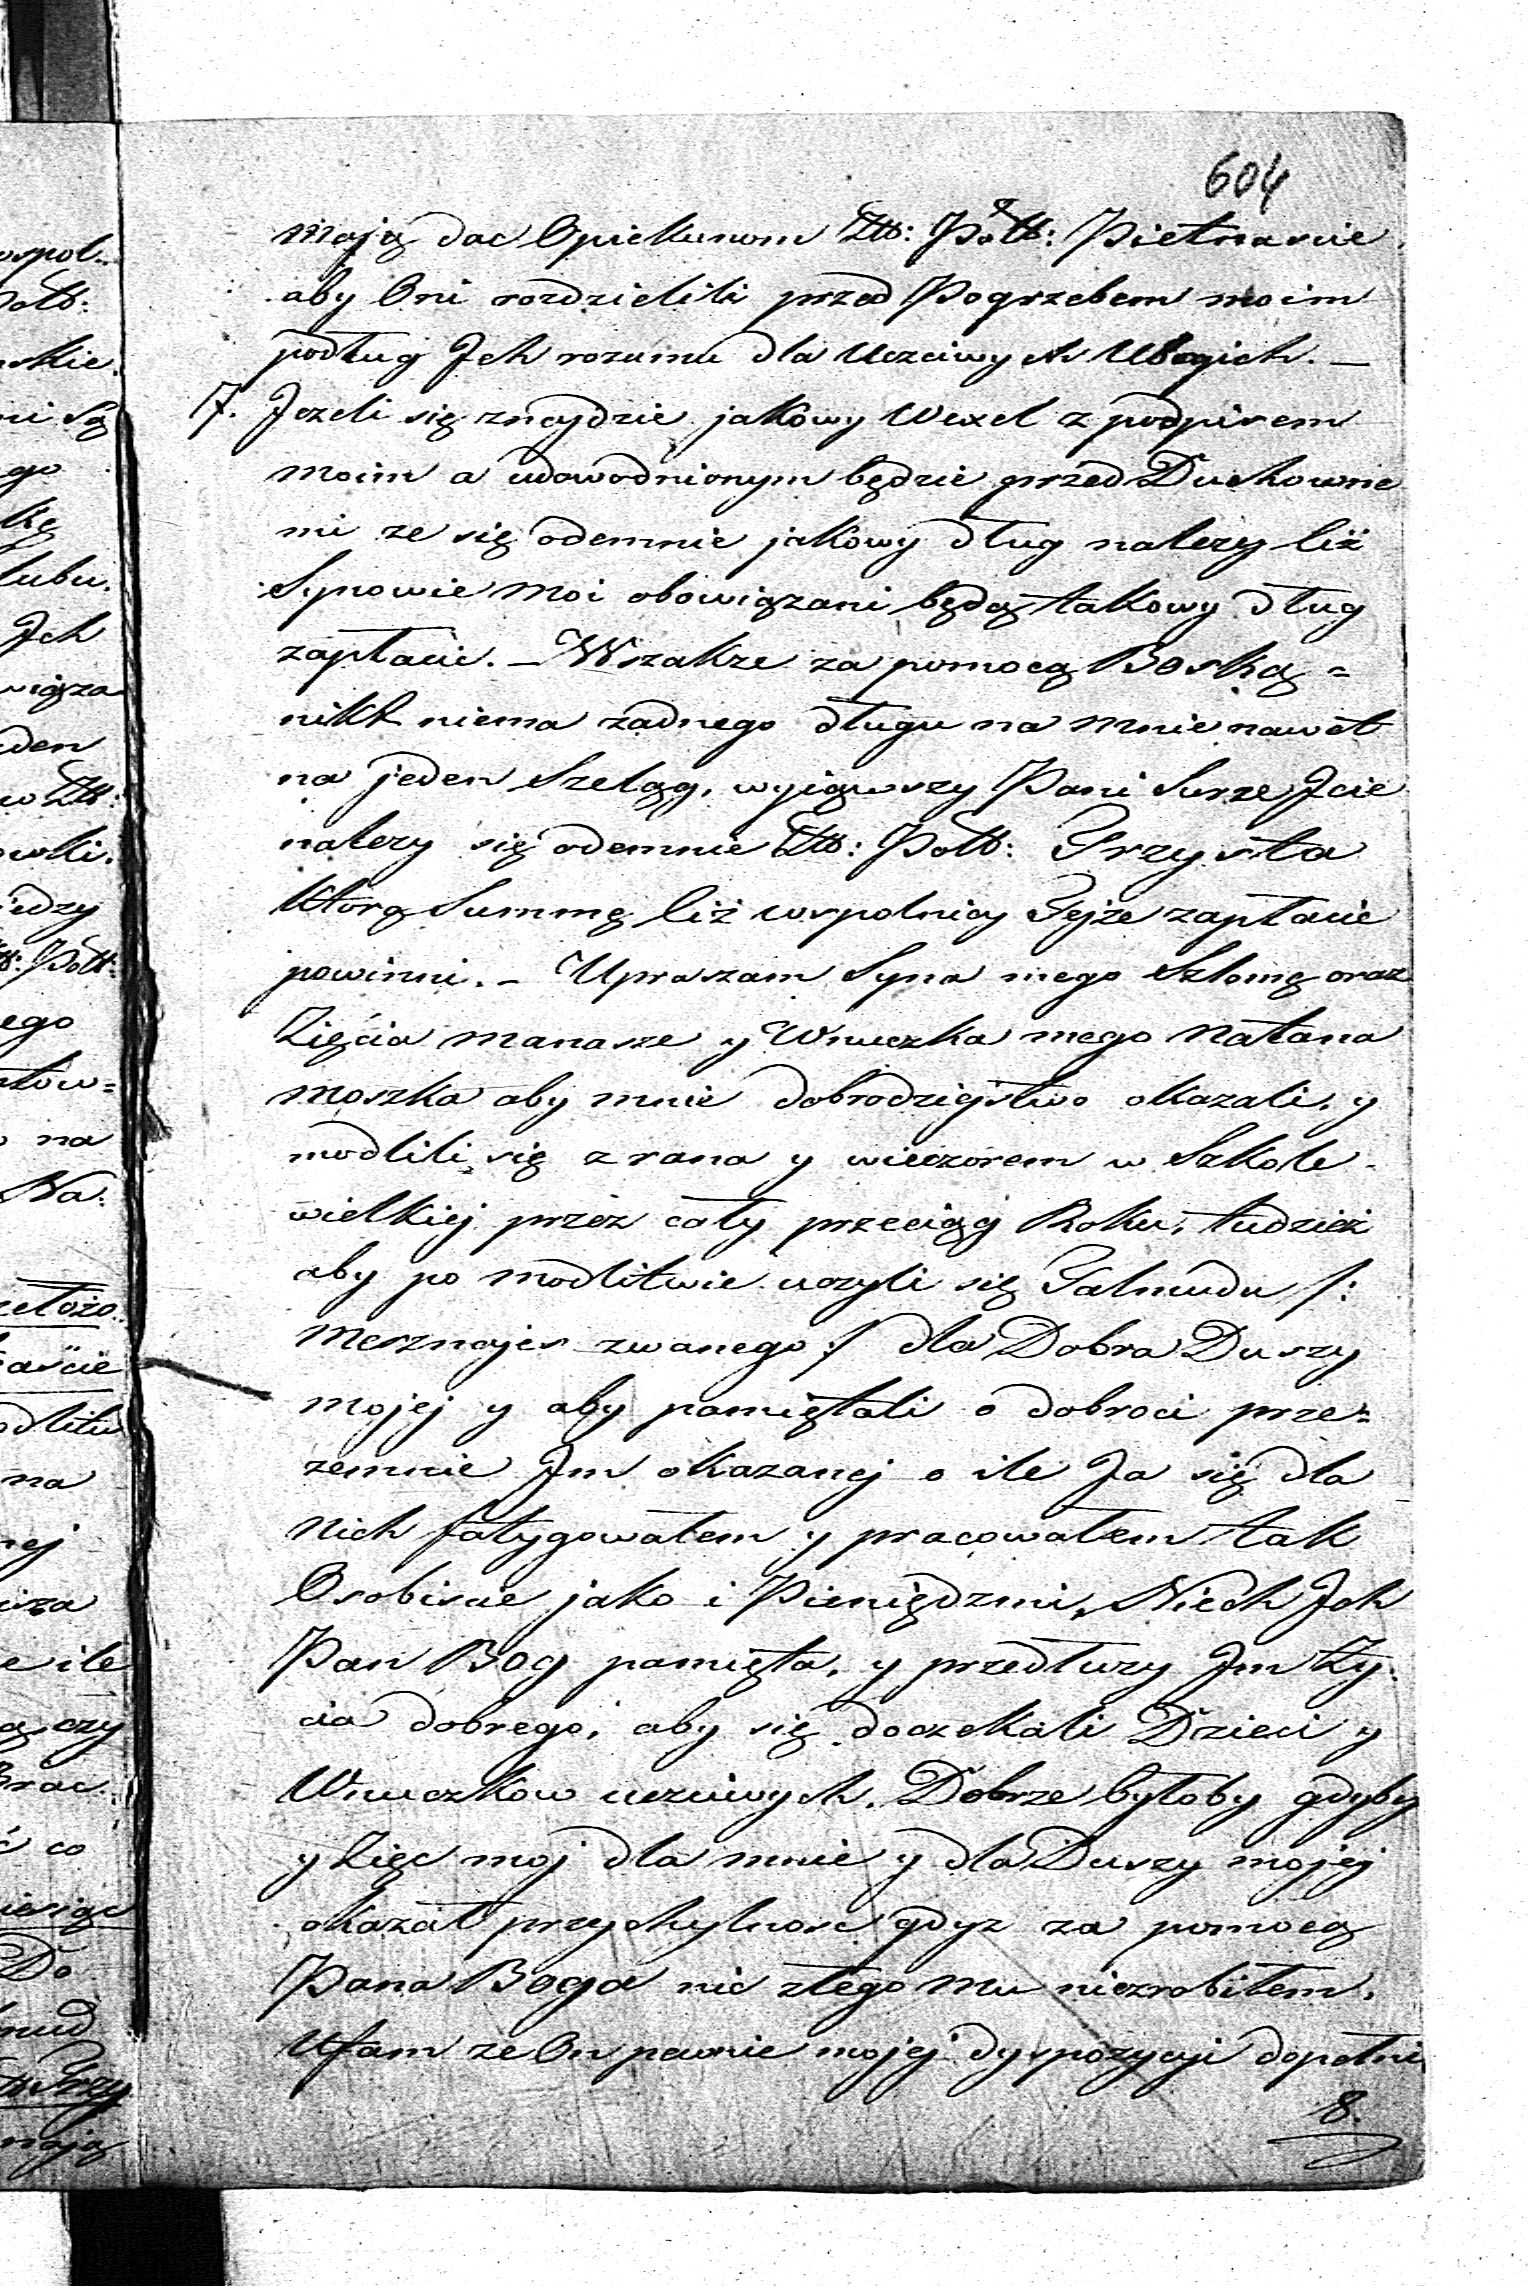 604
mają dac Opiekunom Ztt: Połtt: Pietnascie
aby Oni rozdzielili przed Pogrzebem moim
podług Jch rozumu dla Uczciwych Ubogich. —
7. Jezeli się znajdzie jakowy Wexel z podpisem
moim a udowodnionym będzie przed Duchowne
mi ze się odemnie jakowy dług nalezy liż
Synowie moi obowiązani będą takowy dług
zapłacic. – Wszakze za pomocą Boską =
nikt niema zadnego długu na mnie nawet
na jeden Szeląg, wyiąwszy Pani Surze Jcie
nalezy się odemnie Ztt: Poltt: Trzysta
Którą Summę liż wspolnicy Tejze zapłacic
powinni. – Upraszam Syna mego Szlomę oraz
Zięcia Manasze y Wnuczka mego Natana
Moszka aby mnie dobrodziejstwo okazali, y
modlili się z rana y wieczorem w Szkole
wielkiej przez cały przeciąg Roku, tudzież
aby po modlitwie uczyli się Talmudu /:
Mesznajes zwanego :/ dla Dobra Duszy
mojej y aby pamiętali o dobroci prze=
zemnie Jm okazanej o ile Ja się dla
Nich fatygowałem y pracowałem tak
Osobiscie jako i Pieniędzmi, Niech Jch
Pan Bog pamięta, y przedłuzy Jm Zy
cia dobrego, aby się doczekali Dzieci y
Wnuczkow uczciwych. Dobrze byłoby gdyby
y Zięc moj dla mnie y dla Duszy mojej
okazał przychylnosc gdyz za pomocą
Pana Boga nic złego mu niezrobiłem.
Ufam ze On pewnie mojej dyspozycyi dopełni
8.